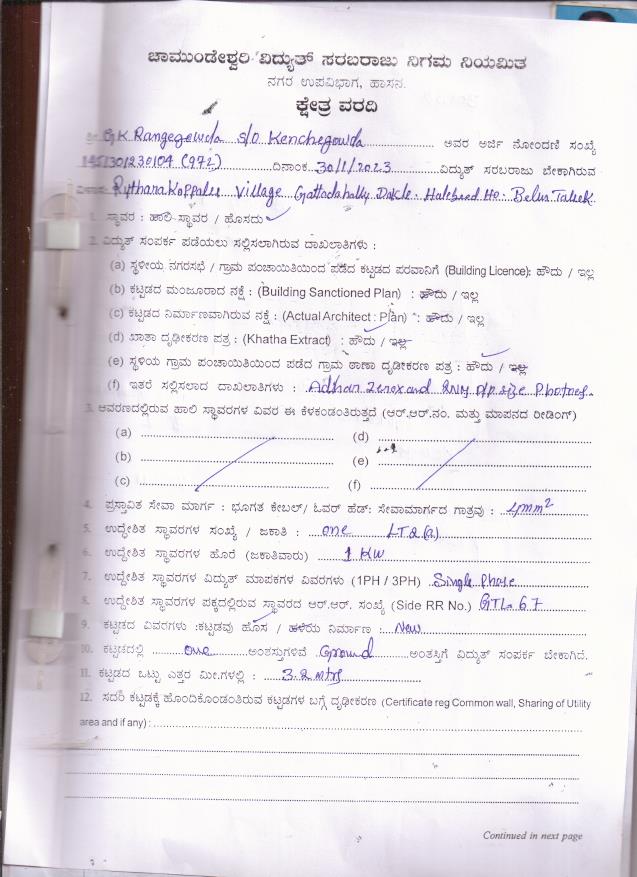 ಚಾಮುಂಡೇಶ್ವರಿ ವಿದ್ಯುತ್ ಸರಬರಾಜು ನಿಗಮ ನಿಯಮಿತ
ನಗರ ಉಪವಿಭಾಗ, ಹಾಸನ.
ಕ್ಷೇತ್ರ ವರದಿ
ಶ್ರೀ GK Rangegowda S/o Kenchegowda ಅವರ ಅರ್ಜಿ ನೋಂದಣಿ ಸಂಖ್ಯೆ
1451301230104 (972) ದಿನಾಂಕ 30/1/2023 ವಿದ್ಯುತ್ ಸರಬರಾಜು ಬೇಕಾಗಿರುವ
ವಿಳಾಸ: Koppalu Village Halebeed Ho: Belur Taluk
1. ಸ್ಥಾವರ : ಹಾಲಿ ಸ್ಥಾವರ / ಹೊಸದು
2. ವಿದ್ಯುತ್ ಸಂಪರ್ಕ ಪಡೆಯಲು ಸಲ್ಲಿಸಲಾಗಿರುವ ದಾಖಲಾತಿಗಳು :
(a) ಸ್ಥಳೀಯ ನಗರಸಭೆ / ಗ್ರಾಮ ಪಂಚಾಯಿತಿಯಿಂದ ಪಡೆದ ಕಟ್ಟಡದ ಪರವಾನಿಗೆ (Building Licence): ಹೌದು / ಇಲ್ಲ
(b) ಕಟ್ಟಡದ ಮಂಜೂರಾದ ನಕ್ಷೆ : (Building Sanctioned Plan) : ಹೌದು / ಇಲ್ಲ
(c) ಕಟ್ಟಡದ ನಿರ್ಮಾಣವಾಗಿರುವ ನಕ್ಷೆ : (Actual Architect : Plan) : ಹೌದು / ಇಲ್ಲ
(d) ಖಾತಾ ದೃಢೀಕರಣ ಪತ್ರ : (Khatha Extract) : ಹೌದು / ಇಲ್ಲ
(e) ಸ್ಥಳಿಯ ಗ್ರಾಮ ಪಂಚಾಯಿತಿಯಿಂದ ಪಡೆದ ಗ್ರಾಮ ಠಾಣಾ ದೃಢೀಕರಣ ಪತ್ರ : ಹೌದು / ಇಲ್ಲ
(f) ಇತರೆ ಸಲ್ಲಿಸಲಾದ ದಾಖಲಾತಿಗಳು : Adhar Zerox and p/p size Photoes.
3. ಆವರಣದಲ್ಲಿರುವ ಹಾಲಿ ಸ್ಥಾವರಗಳ ವಿವರ ಈ ಕೆಳಕಂಡಂತಿರುತ್ತದೆ (ಆರ್.ಆರ್.ನಂ. ಮತ್ತು ಮಾಪನದ ರೀಡಿಂಗ್)
(a) (d)
(b) (e)
(c) (f)
4. ಪ್ರಸ್ತಾವಿತ ಸೇವಾ ಮಾರ್ಗ : ಭೂಗತ ಕೇಬಲ್/ ಓವರ್ ಹೆಡ್: ಸೇವಾಮಾರ್ಗದ ಗಾತ್ರವು : 4mm²
5. ಉದ್ದೇಶಿತ ಸ್ಥಾವರಗಳ ಸಂಖ್ಯೆ / ಜಕಾತಿ : one LT2(a)
6. ಉದ್ದೇಶಿತ ಸ್ಥಾವರಗಳ ಹೊರೆ (ಜಕಾತಿವಾರು) 1 KW
7. ಉದ್ದೇಶಿತ ಸ್ಥಾವರಗಳ ವಿದ್ಯುತ್ ಮಾಪಕಗಳ ವಿವರಗಳು (1PH / 3PH) Single Phase
8. ಉದ್ದೇಶಿತ ಸ್ಥಾವರಗಳ ಪಕ್ಕದಲ್ಲಿರುವ ಸ್ಥಾವರದ ಆರ್.ಆರ್. ಸಂಖ್ಯೆ (Side RR No.) GTL-67
9. ಕಟ್ಟಡದ ವಿವರಗಳು :ಕಟ್ಟಡವು ಹೊಸ / ಹಳೆಯ ನಿರ್ಮಾಣ : New
10. ಕಟ್ಟಡದಲ್ಲಿ one ಅಂತಸ್ತುಗಳಿವೆ Ground ಅಂತಸ್ತಿಗೆ ವಿದ್ಯುತ್ ಸಂಪರ್ಕ ಬೇಕಾಗಿದೆ.
11. ಕಟ್ಟಡದ ಒಟ್ಟು ಎತ್ತರ ಮೀ.ಗಳಲ್ಲಿ : 3.2 mtrs
12. ಸದರಿ ಕಟ್ಟಡಕ್ಕೆ ಹೊಂದಿಕೊಂಡಂತಿರುವ ಕಟ್ಟಡಗಳ ಬಗ್ಗೆ ದೃಢೀಕರಣ (Certificate reg Common wall, Sharing of Utility
area and if any) :
Continued in next page